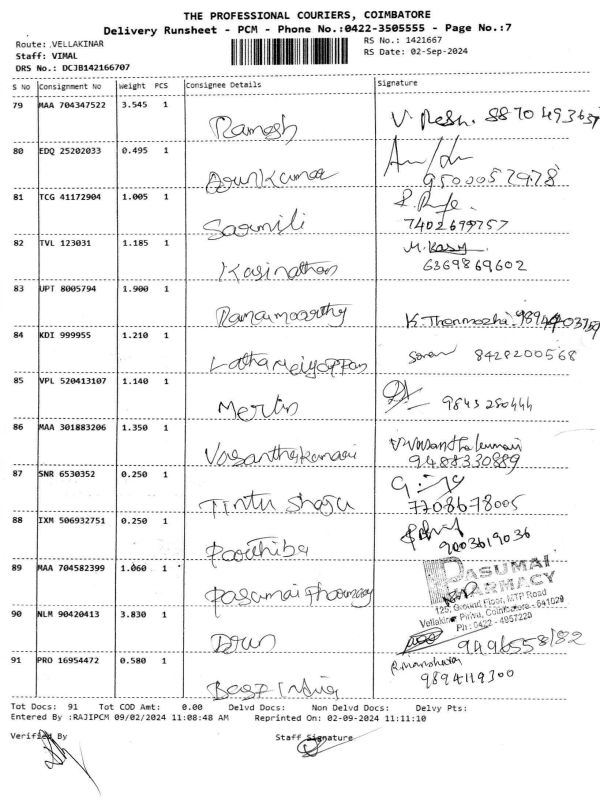 THE PROFESSIONAL COURIERS, COIMBATORE
Delivery Runsheet - PCM - Phone No.:0422-3505555 - Page No.:7
Route: VELLAKINAR
RS No.: 1421667
Staff: VIMAL
RS Date: 02-Sep-2024
DRS No.: DCJB142166707
S No Consignment No Weight PCS Consignee Details Signature
79 MAA 704347522 3.545 1
Ramesh
80 EDQ 25202033 0.495 1
Arunkumar 9500057978
81 TCG 41172904 1.005 1
Sarmili 7402699757
82 TVL 123031 1.185 1
Kasinathan 6369869602
83 UPT 8005794 1.900 1
Ramamoorthy K. Thenmozhi
84 KDI 999955 1.210 1
Latha Meiyappan 8428200568
85 VPL 520413107 1.140 1
Merlin 9843280444
86 MAA 301883206 1.350 1
Vasanthakumari V. Vasanthakumari
9488330889
87 SNR 6530352 0.250 1
Tintu Shaju 7708678005
88 IXM 506932751 0.250 1
Parthiba 9003619036
89 MAA 704582399 1.060 1
Pasumai Pharmacy
PASUMAI
PHARMACY
125, Ground Floor, MTP Road
Vellakinar Pirivu, Coimbatore - 641029
Ph : 0422 - 4957220
90 NLM 90420413 3.830 1
Arun
91 PRO 16954472 0.580 1
R. Manoharan
9894119300
Best India
Tot Docs: 91 Tot COD Amt: 0.00 Delvd Docs: Non Delvd Docs: Delvy Pts:
Entered By :RAJIPCM 09/02/2024 11:08:48 AM Reprinted On: 02-09-2024 11:11:10
Verified By Staff Signature